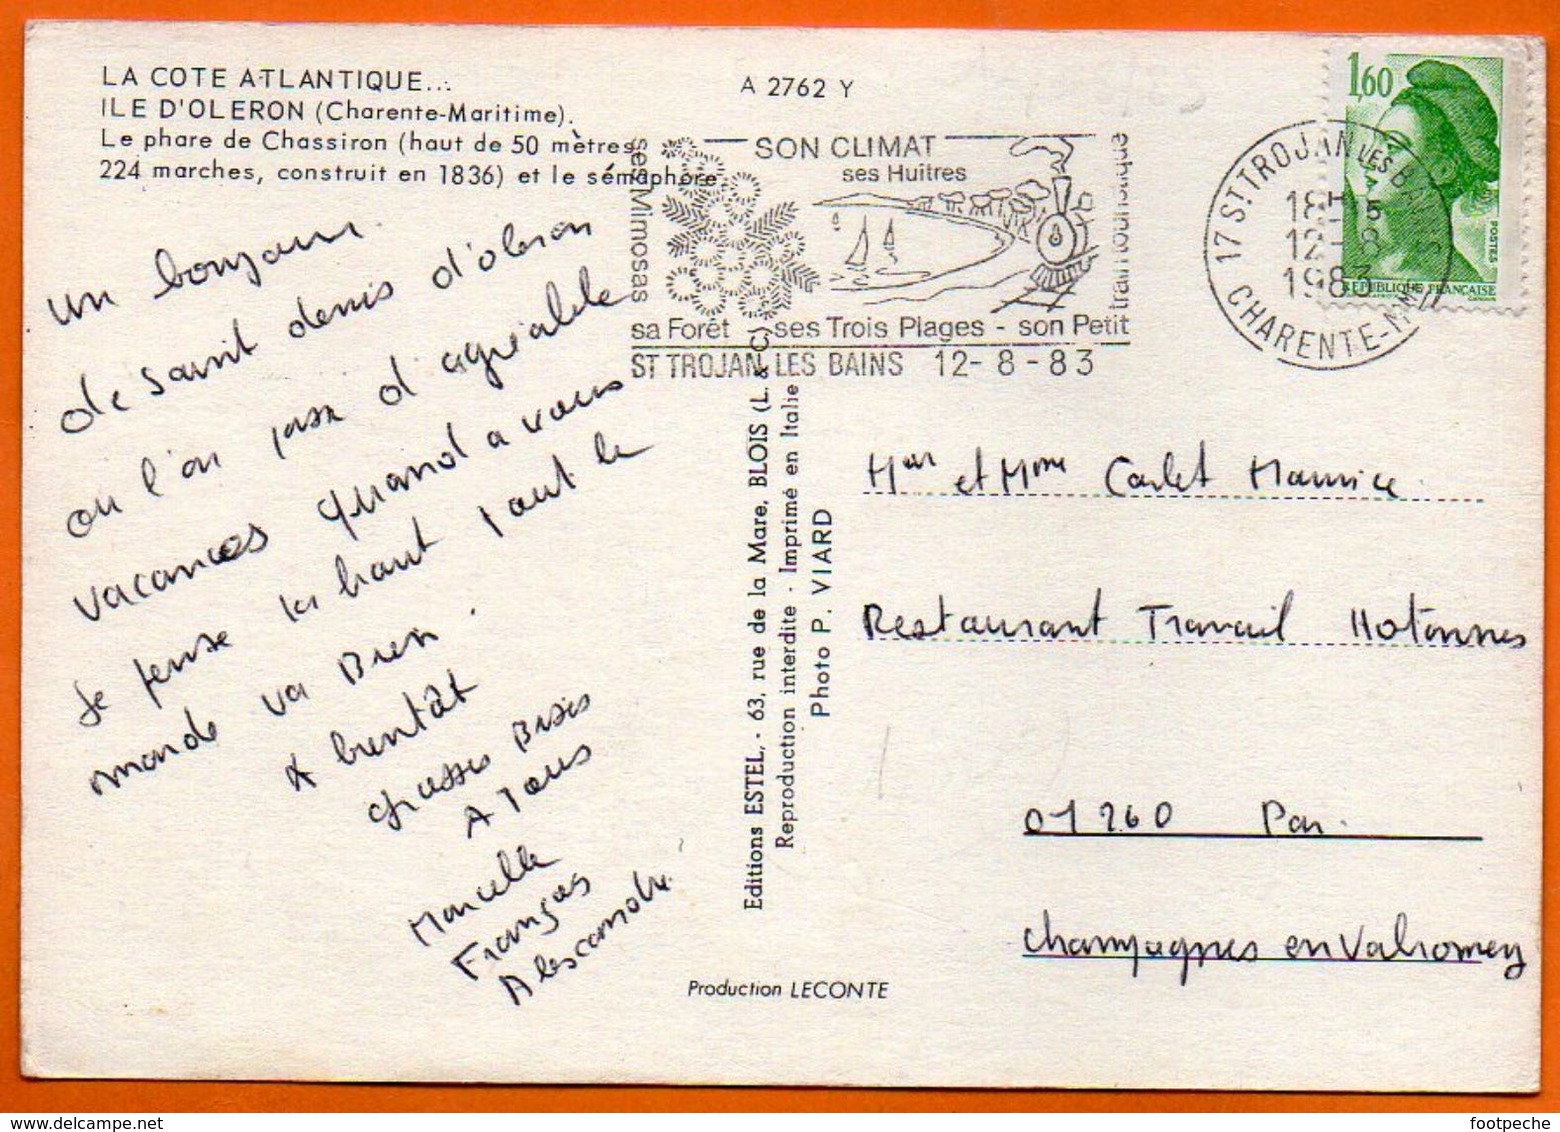 LA COTE ATLANTIQUE...
ILE D'OLERON (Charente-Maritime).
Le phare de Chassiron (haut de 50 mètres,
224 marches, construit en 1836) et le sémaphore.
A 2762 Y
SON CLIMAT
ses Huîtres
ses Mimosas
train touristique
sa Forêt ses Trois Plages - son Petit
ST TROJAN LES BAINS 12-8-83
17 ST TROJAN LES BAINS
18H 15
12-8
1983
CHARENTE-MME
1,60
POSTES
REPUBLIQUE FRANÇAISE
un bonjour
de saint denis d'oleron
ou l'on passe d'agréable
vacances quand a vous
Je pense la haut tout le
monde va Bien.
A bientôt
grosses Bises
A Tous
Marcelle
François
Alescandre.
Editions ESTEL, - 63, rue de la Mare, BLOIS (L. & C.)
Reproduction interdite - Imprimé en Italie
Photo P. VIARD
Production LECONTE
Mr et Mme Carlet Maurice
Restaurant Travail Hotonnes
01260 Par
Champagnes en Valromey
footpeche